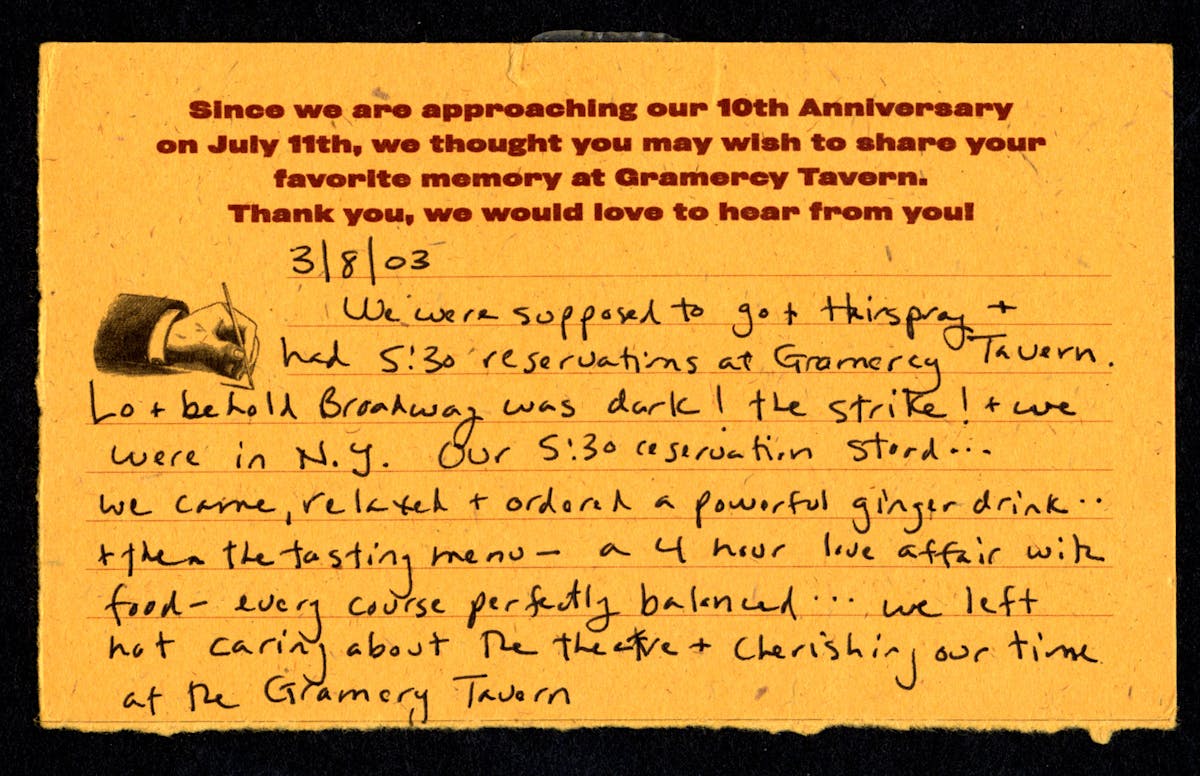 Since we are approaching our 10th Anniversary
on July 11th, we thought you may wish to share your
favorite memory at Gramercy Tavern.
Thank you, we would love to hear from you!
3/8/03
We were supposed to go t Hairspray +
had 5:30 reservations at Gramercy Tavern.
Lo + behold Broadway was dark! the strike! + we
were in N.Y. Our 5:30 reservation stood...
we came, relaxed + ordered a powerful ginger drink..
+ then the tasting menu - a 4 hour love affair with
food - every course perfectly balanced... we left
not caring about the theatre + cherishing our time
at the Gramercy Tavern